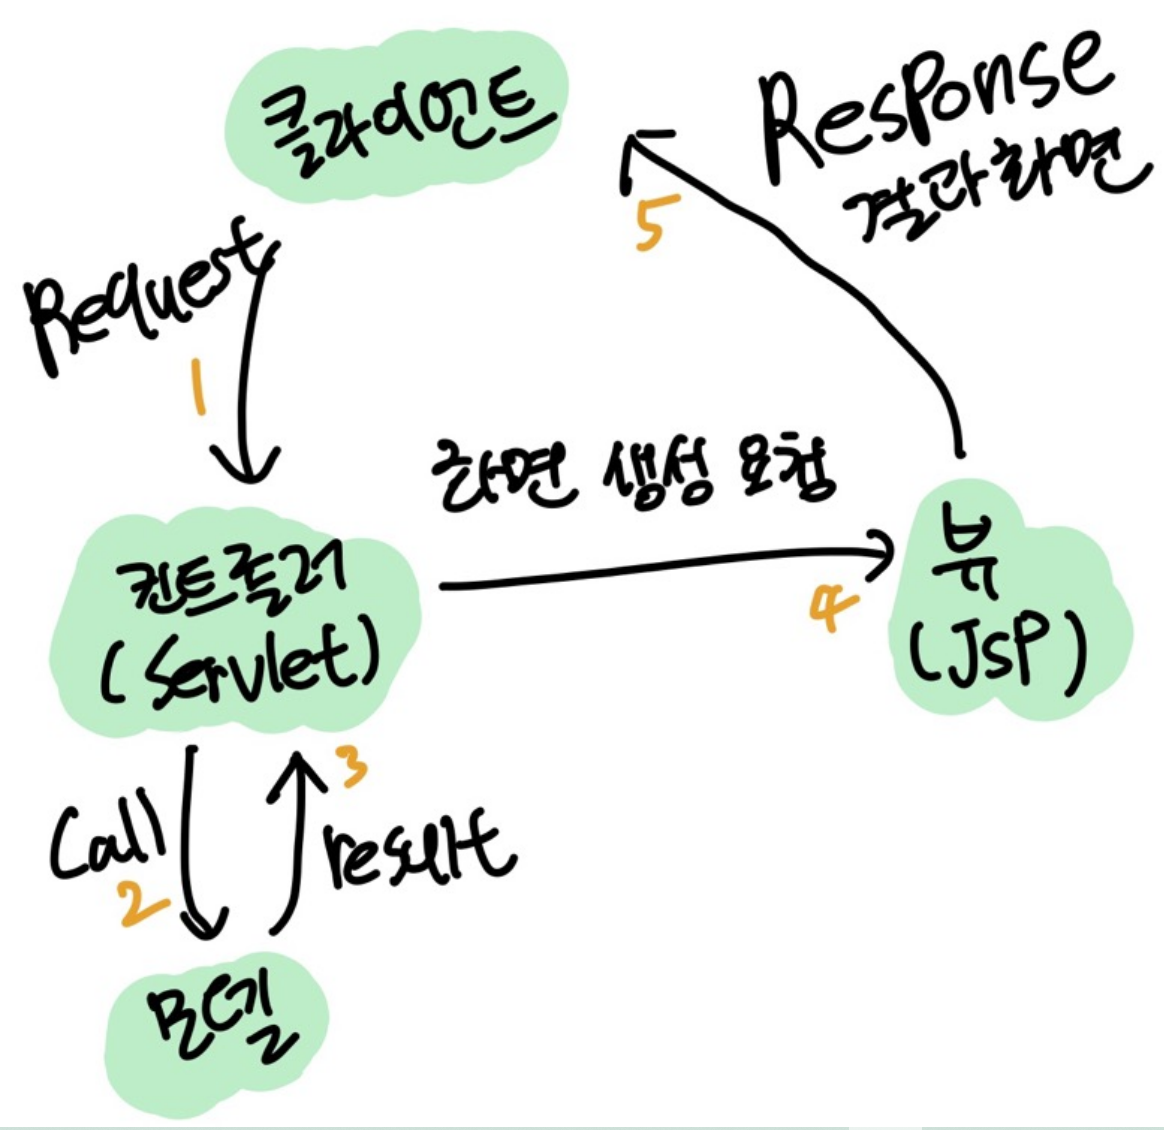 클라이언트
Response
결과화면
5
Request
1
화면 생성 요청
4
컨트롤러
(Servlet)
뷰
(JSP)
3
Call
2
result
모델